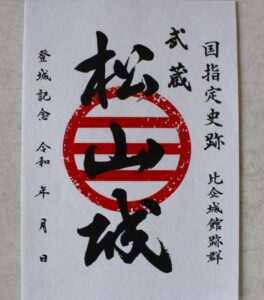 国指定史跡
比企城館跡群
武蔵
松山城
登城記念 令和 年 月 日